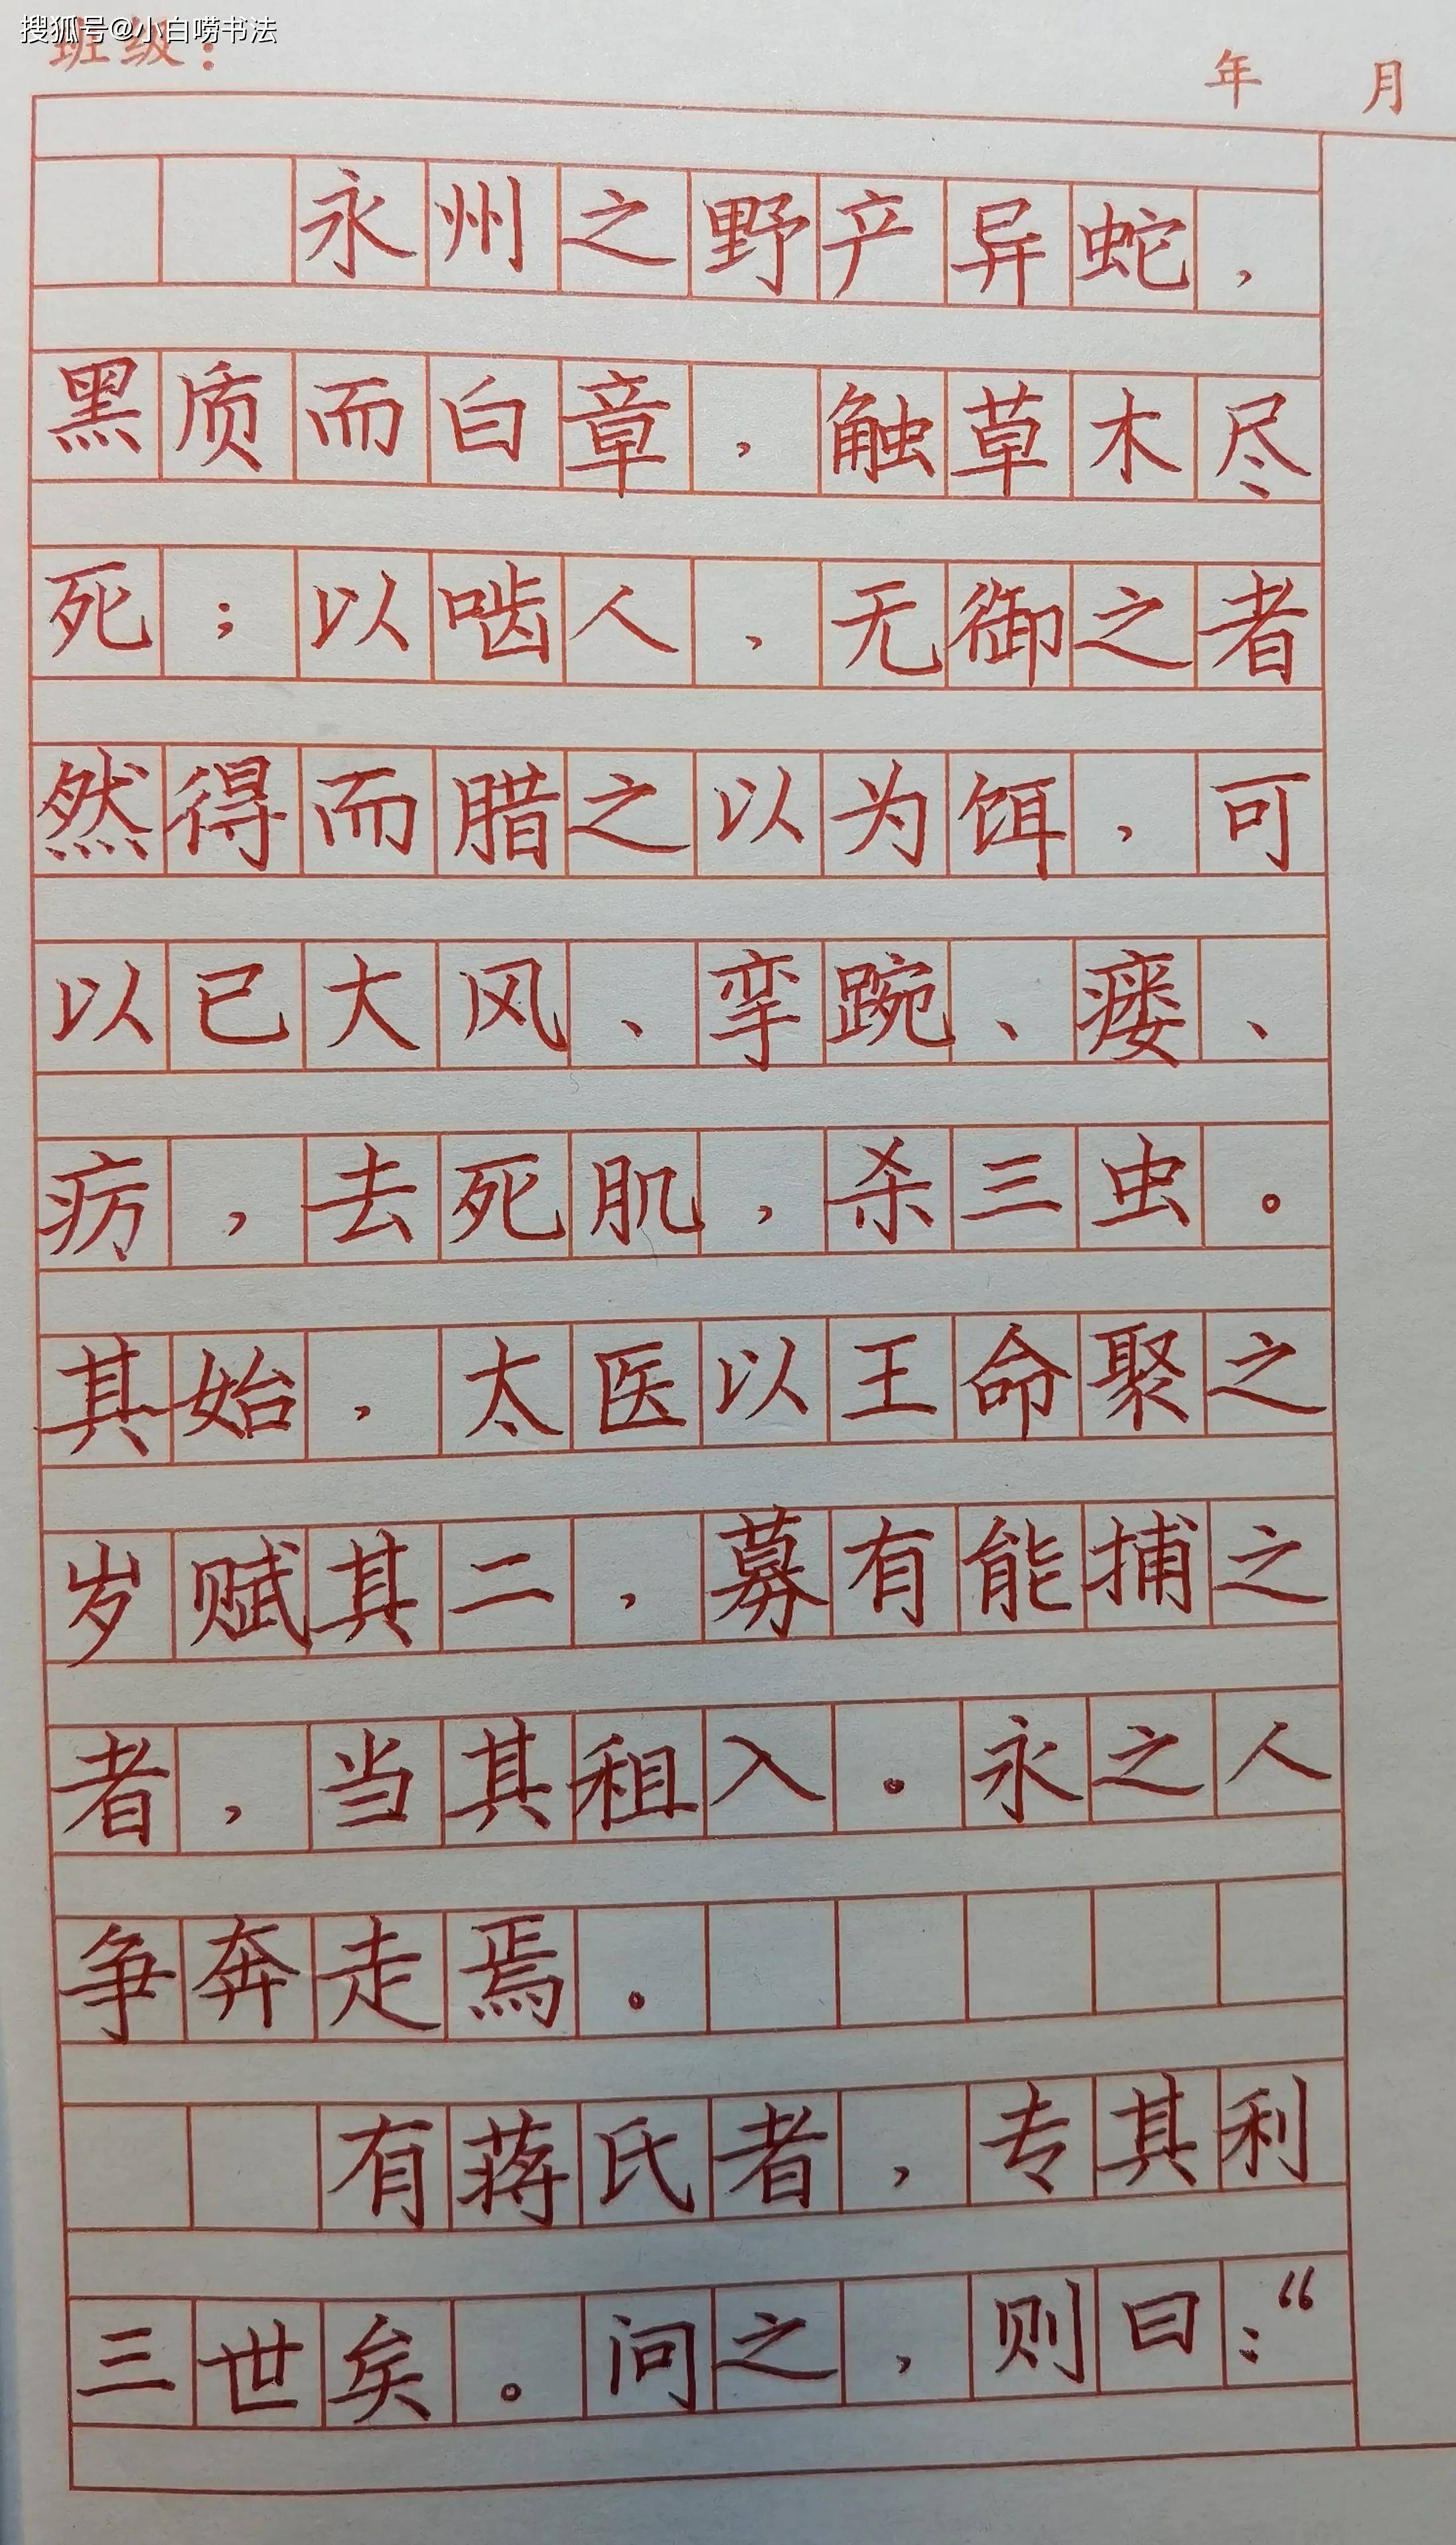 搜狐号@小白唠书法
班级：
年 月
永州之野产异蛇，
黑质而白章，触草木尽
死；以啮人，无御之者
然得而腊之以为饵，可
以已大风、挛踠、瘘、
疠，去死肌，杀三虫。
其始，太医以王命聚之
岁赋其二，募有能捕之
者，当其租入。永之人
争奔走焉。
有蒋氏者，专其利
三世矣。问之，则曰：“